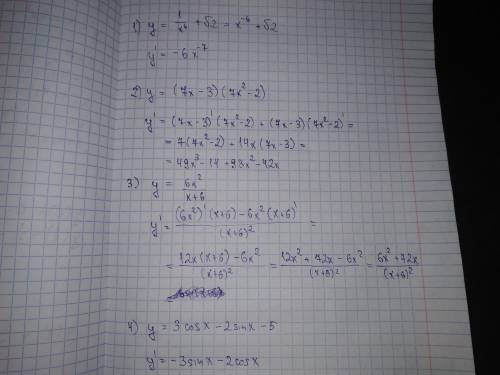 1) y = 1/x⁶ + √2 = x⁻⁶ + √2
y' = -6x⁻⁷
2) y = (7x - 3)(7x² - 2)
y' = (7x - 3)'(7x² - 2) + (7x - 3)(7x² - 2)' =
= 7(7x² - 2) + 14x(7x - 3) =
= 49x³ - 14 + 98x² - 42x
3) y = 6x²/(x+6)
y' = ((6x²)'(x+6) - 6x²(x+6)')/(x+6)² =
= (12x(x+6) - 6x²)/(x+6)² = (12x² + 72x - 6x²)/(x+6)² = (6x² + 72x)/(x+6)²
4) y = 3cosx - 2sinx - 5
y' = -3sinx - 2cosx